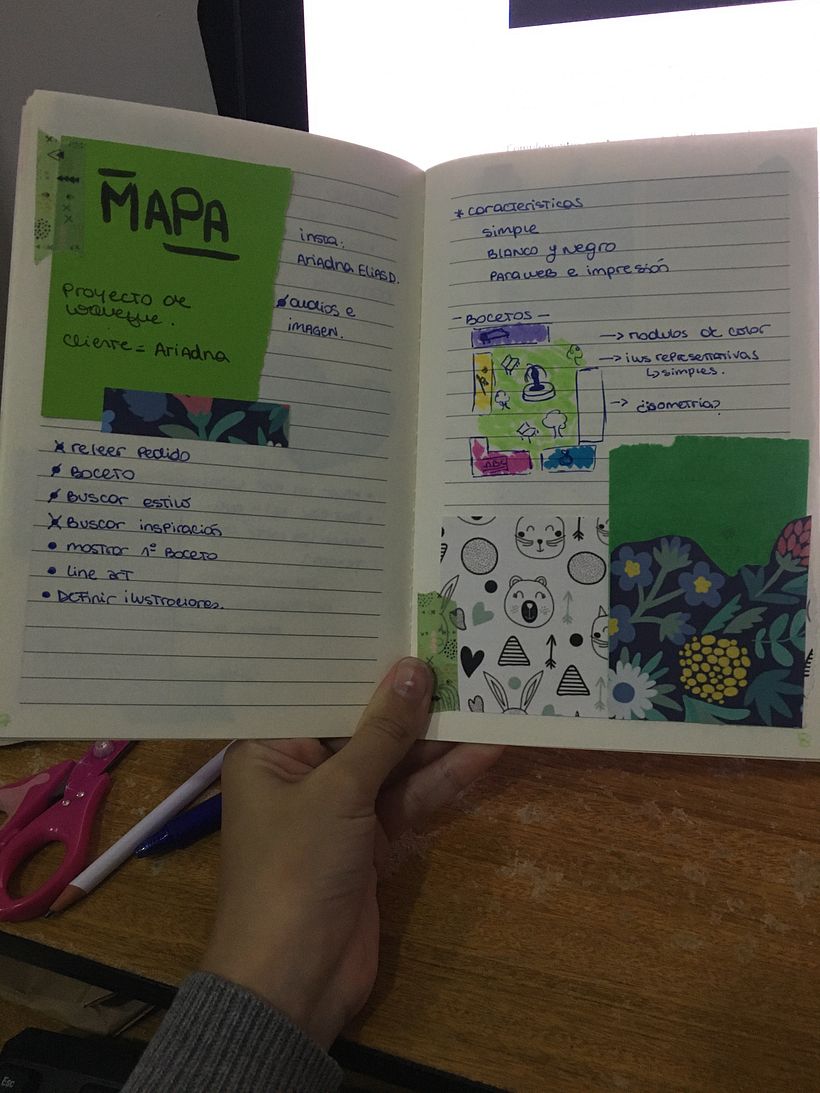 MAPA
Proyecto de
cliente = Ariadna
insta:
Ariadna Elias D.
audios e
imagen.
releer pedido
Boceto
Buscar estilo
Buscar inspiración
mostrar 1º Boceto
line art
Definir ilustraciones.
* características
simple
Blanco y negro
Para web e impresión
- Bocetos -
→ modulos de color
→ ilus representativas
↳ simples.
→ ¿isometría?
Esc